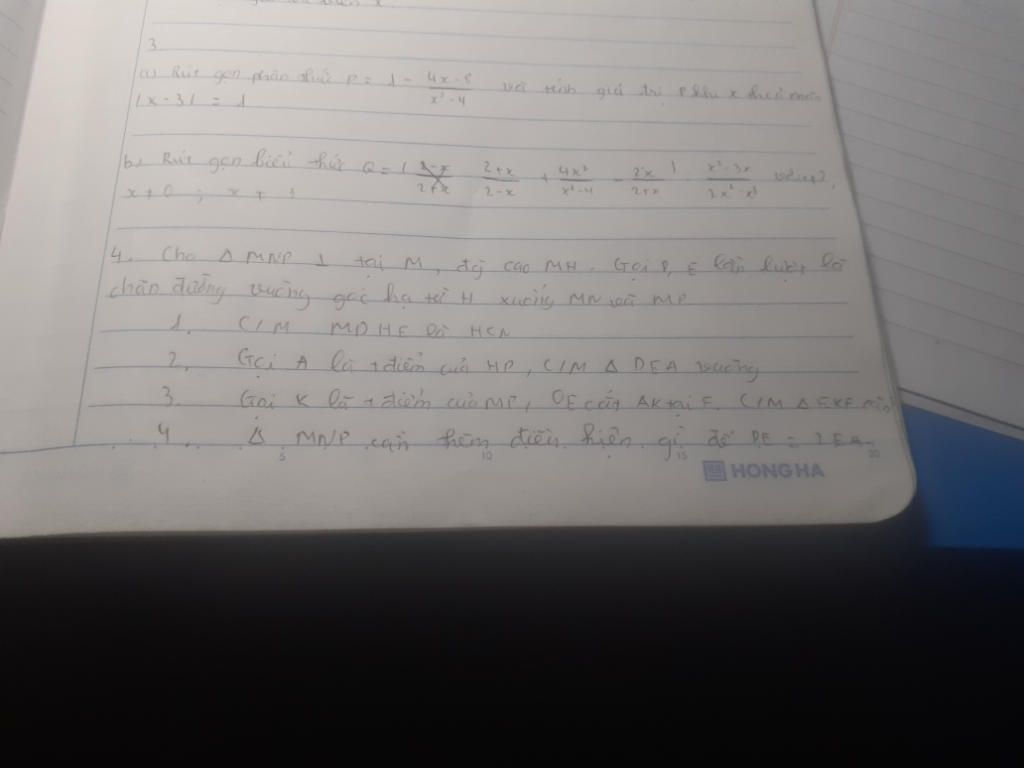 3
a) Rút gọn phân thức P = 1 - \frac{4x-8}{x^2-4} với tính giá trị P khi x thoả mãn
|x - 3| = 1
b, Rút gọn biểu thức Q = ( \frac{2+x}{2-x} + \frac{4x^2}{x^2-4} - \frac{2-x}{2+x} ) : \frac{x^2-3x}{2x^2-x^3}
x ≠ 0 ; x ≠ 3
4. Cho Δ MNP ⊥ tại M, đg cao MH. Gọi D, E lần lượt là
chân đường vuông góc hạ từ H xuống MN và MP
1. C/M MDHE là HCN
2. Gọi A là t điểm của HP, C/M Δ DEA vuông
3. Gọi K là t điểm của MP, DE cắt AK tại F. C/M Δ EKF
4. Δ MNP cần thêm điều kiện gì để DE = 2EA
5 10 15 20
HONG HA